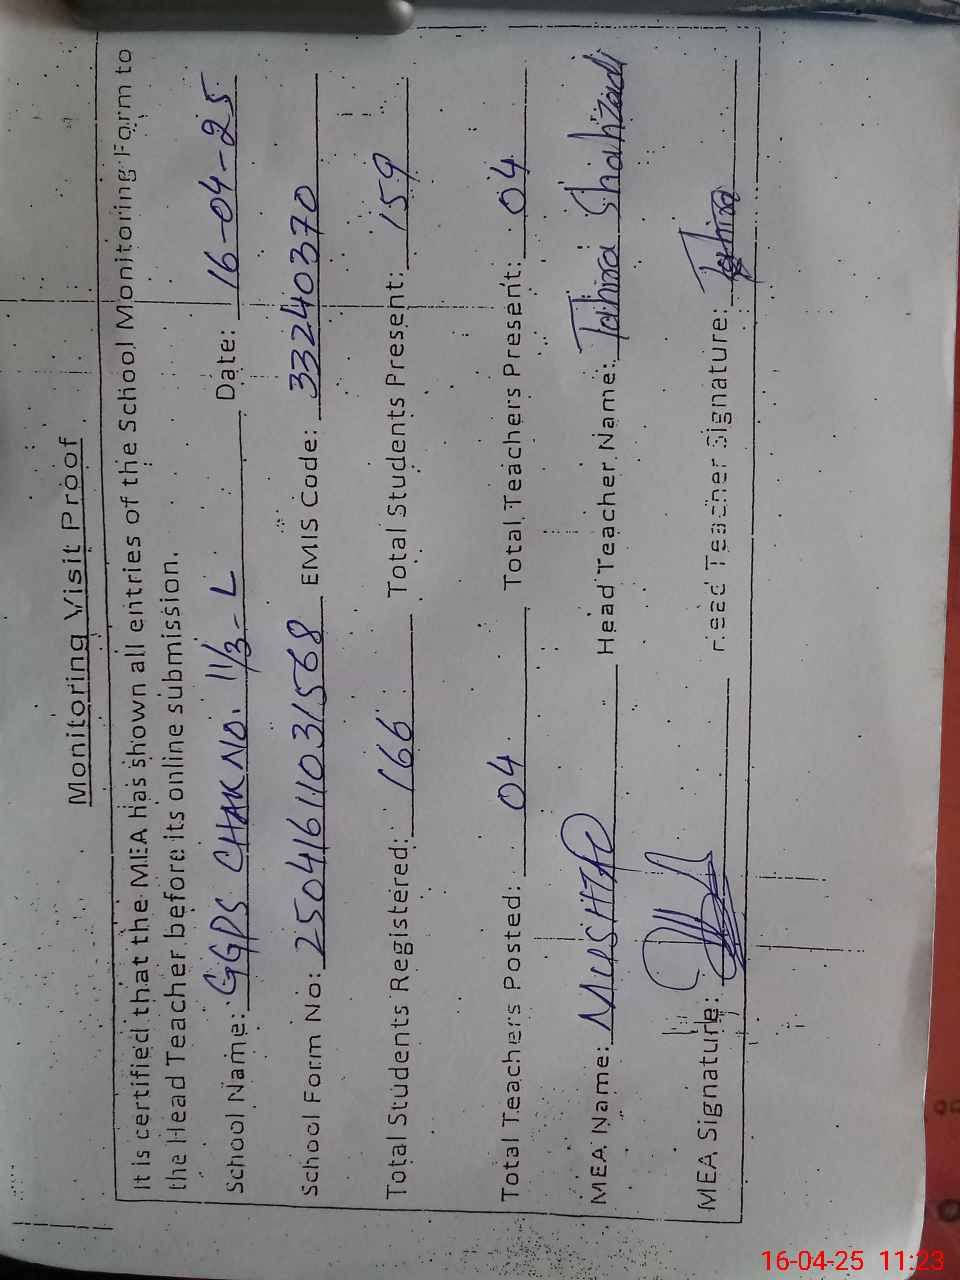 Monitoring Visit Proof
It is certified that the MEA has shown all entries of the School Monitoring Form to
the Head Teacher before its online submission.
School Name: GGPS CHAK NO. 11/3-L Date: 16-04-25
School Form No: 25041611031568 EMIS Code: 33240370
Total Students Registered: 166 Total Students Present: 159
Total Teachers Posted: 04 Total Teachers Present: 04
MEA Name: MUSHTAQ Head Teacher Name: Tahira Shahzadi
MEA Signature: Head Teacher Signature: Tahira
16-04-25 11:23